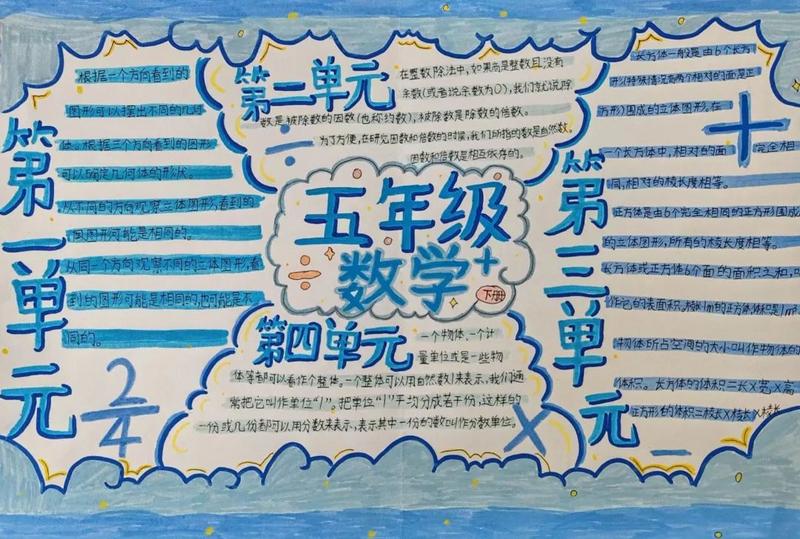 五年级
数学
下册
第一单元
根据一个方向看到的
图形可以摆出不同的几何
体。根据三个方向看到的图形
可以确定几何体的形状。
从不同的方向观察立体图形,看到的
图形可能是相同的。
从同一个方向观察不同的立体图形,看
到的图形可能是相同的,也可能是不
同的。
2
4
第二单元
在整数除法中,如果商是整数且没有
余数(或者说余数为0),我们就说除
数是被除数的因数(也称约数),被除数是除数的倍数。
为了方便,在研究因数和倍数的时候,我们所指的数是自然数。
因数和倍数是相互依存的。
÷
第三单元
长方体一般是由6个长方
形(特殊情况有两个相对的面是正
方形)围成的立体图形。在
一个长方体中,相对的面完全相
同,相对的棱长度相等。
正方体是由6个完全相同的正方形围成
的立体图形,所有的棱长度相等。
长方体或正方体6个面的面积之和,叫
作它的表面积。棱长1m的正方体,体积是1m³
物体所占空间的大小叫作物体的
体积。长方体的体积=长X宽X高
正方形的体积=棱长X棱长X棱长
+
−
第四单元
一个物体、一个计
量单位或是一些物
体等都可以看作个整体。一个整体可以用自然数1来表示,我们通
常把它叫作单位“1”。把单位“1”平均分成若干份,这样的
一份或几份都可以用分数来表示,表示其中一份的数叫作分数单位。
X